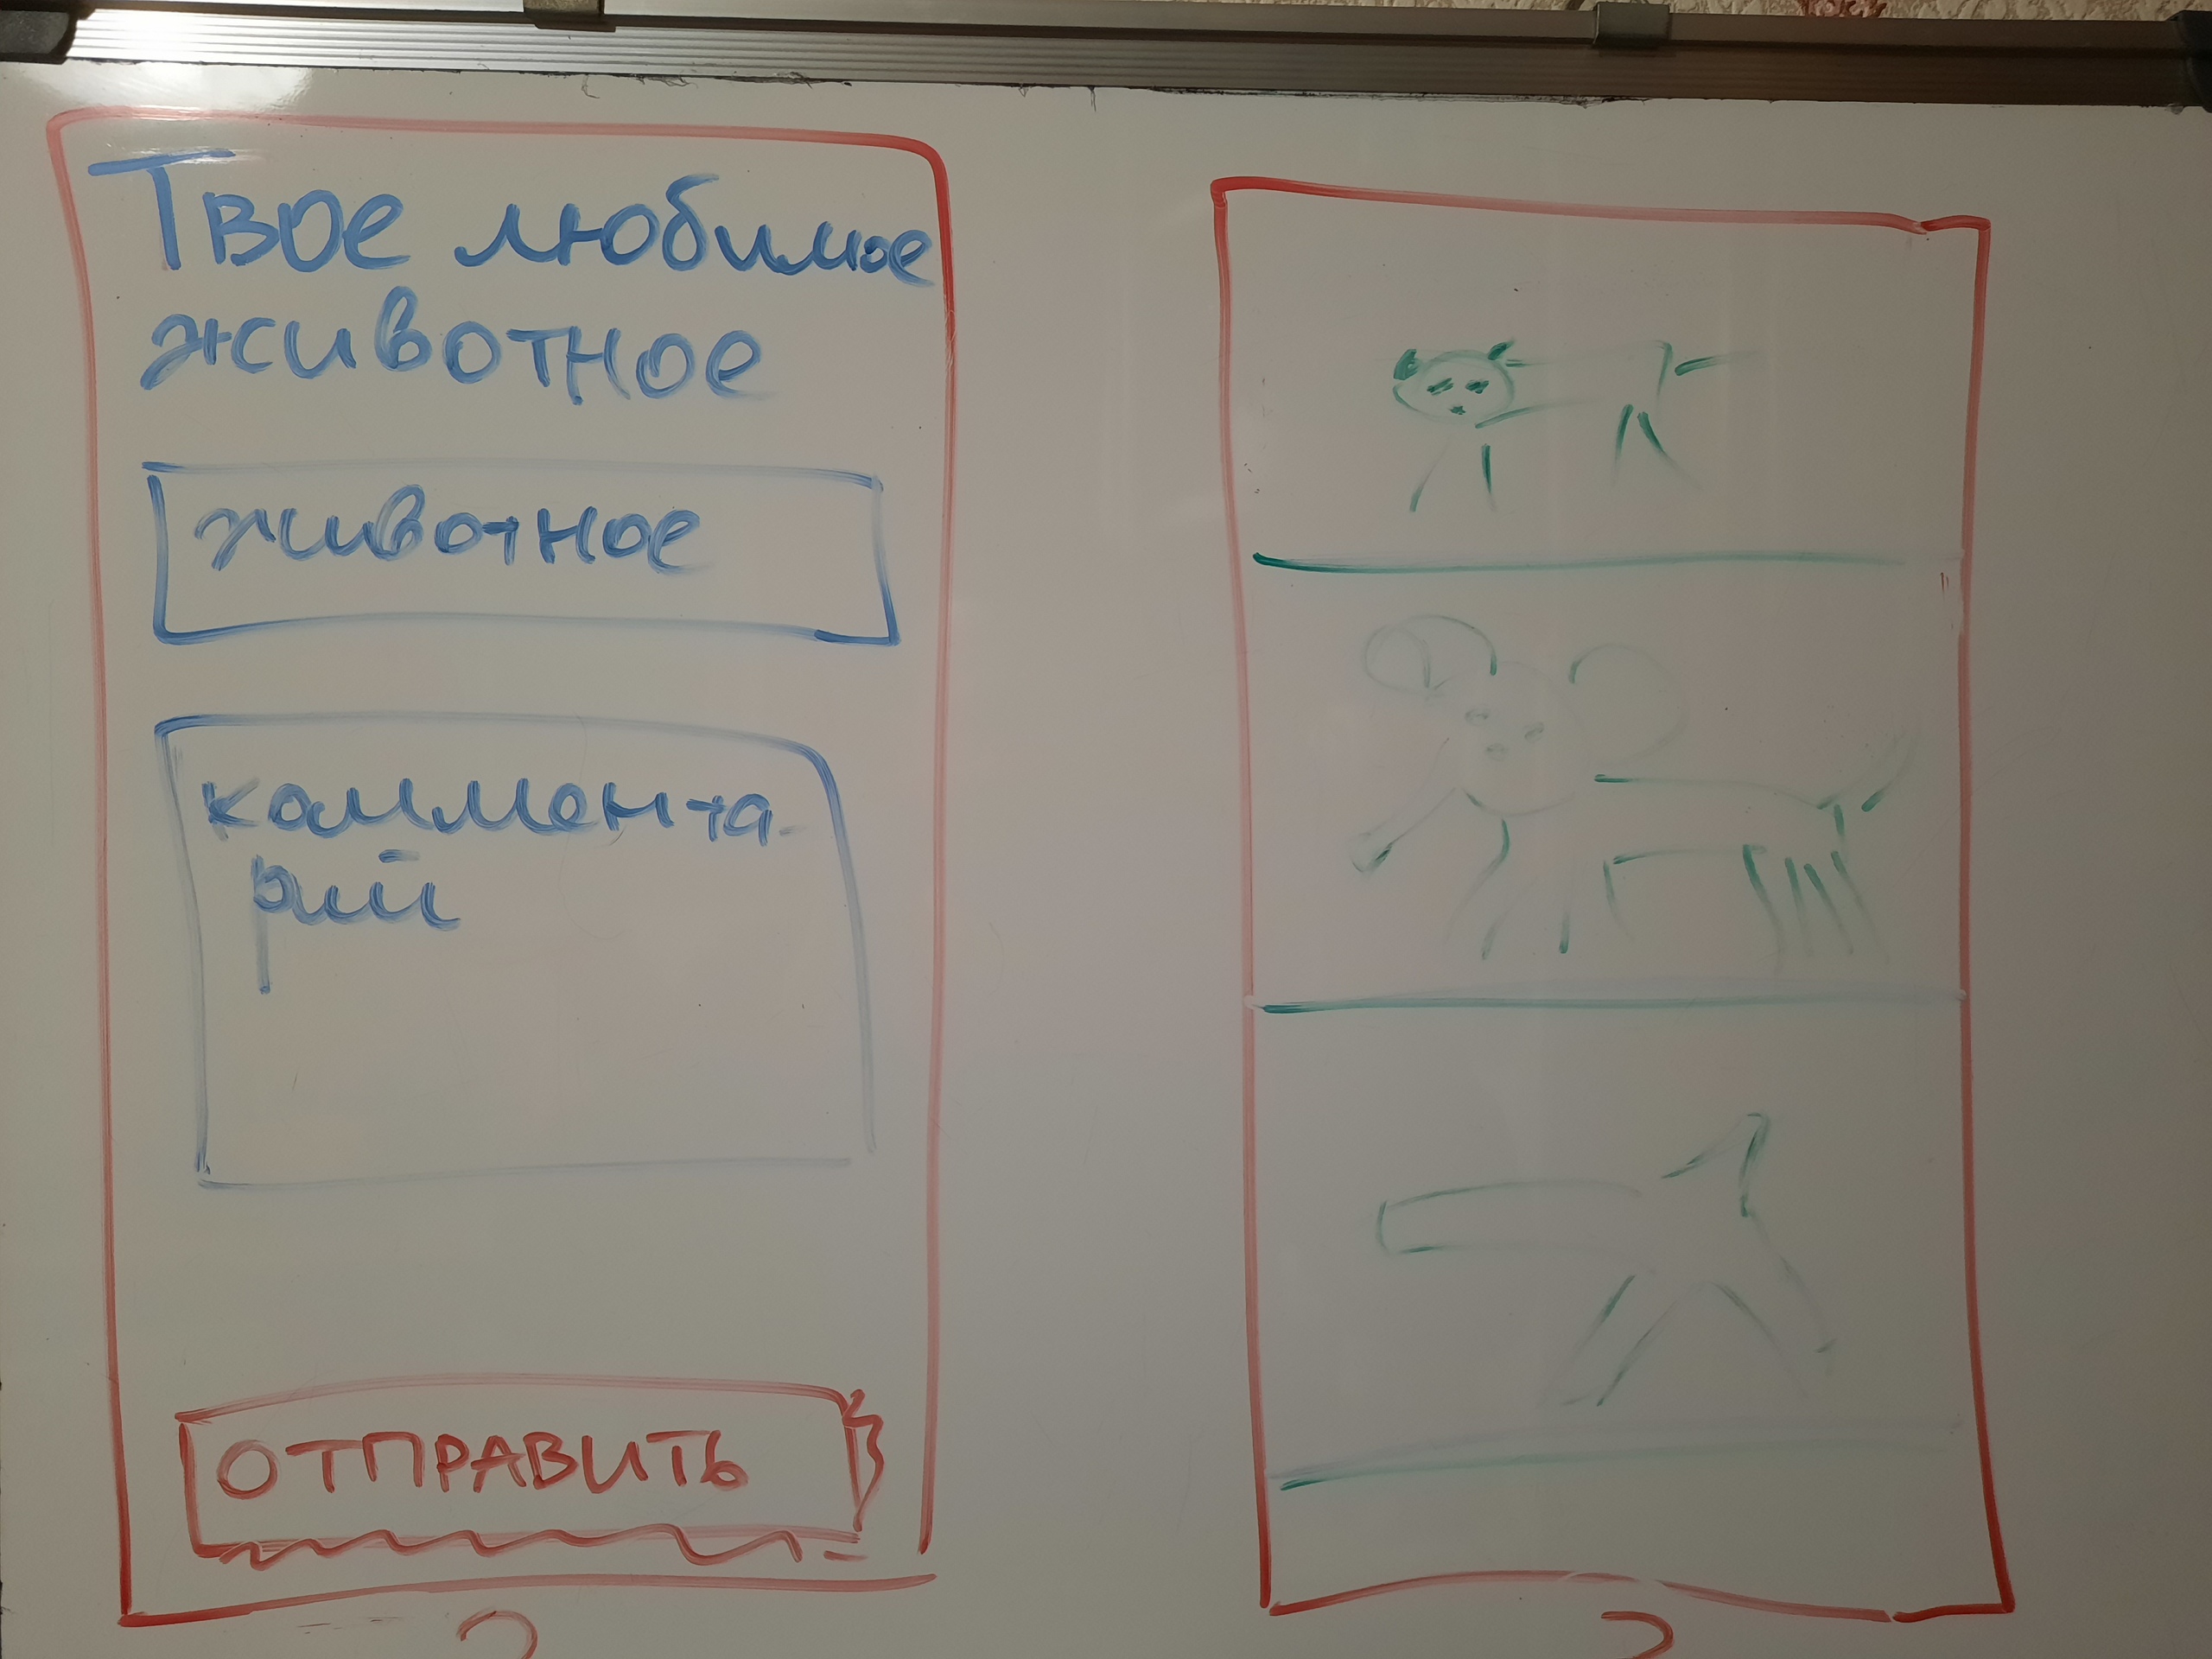 Твое любимое
животное
животное
коммента-
рий
ОТПРАВИТЬ